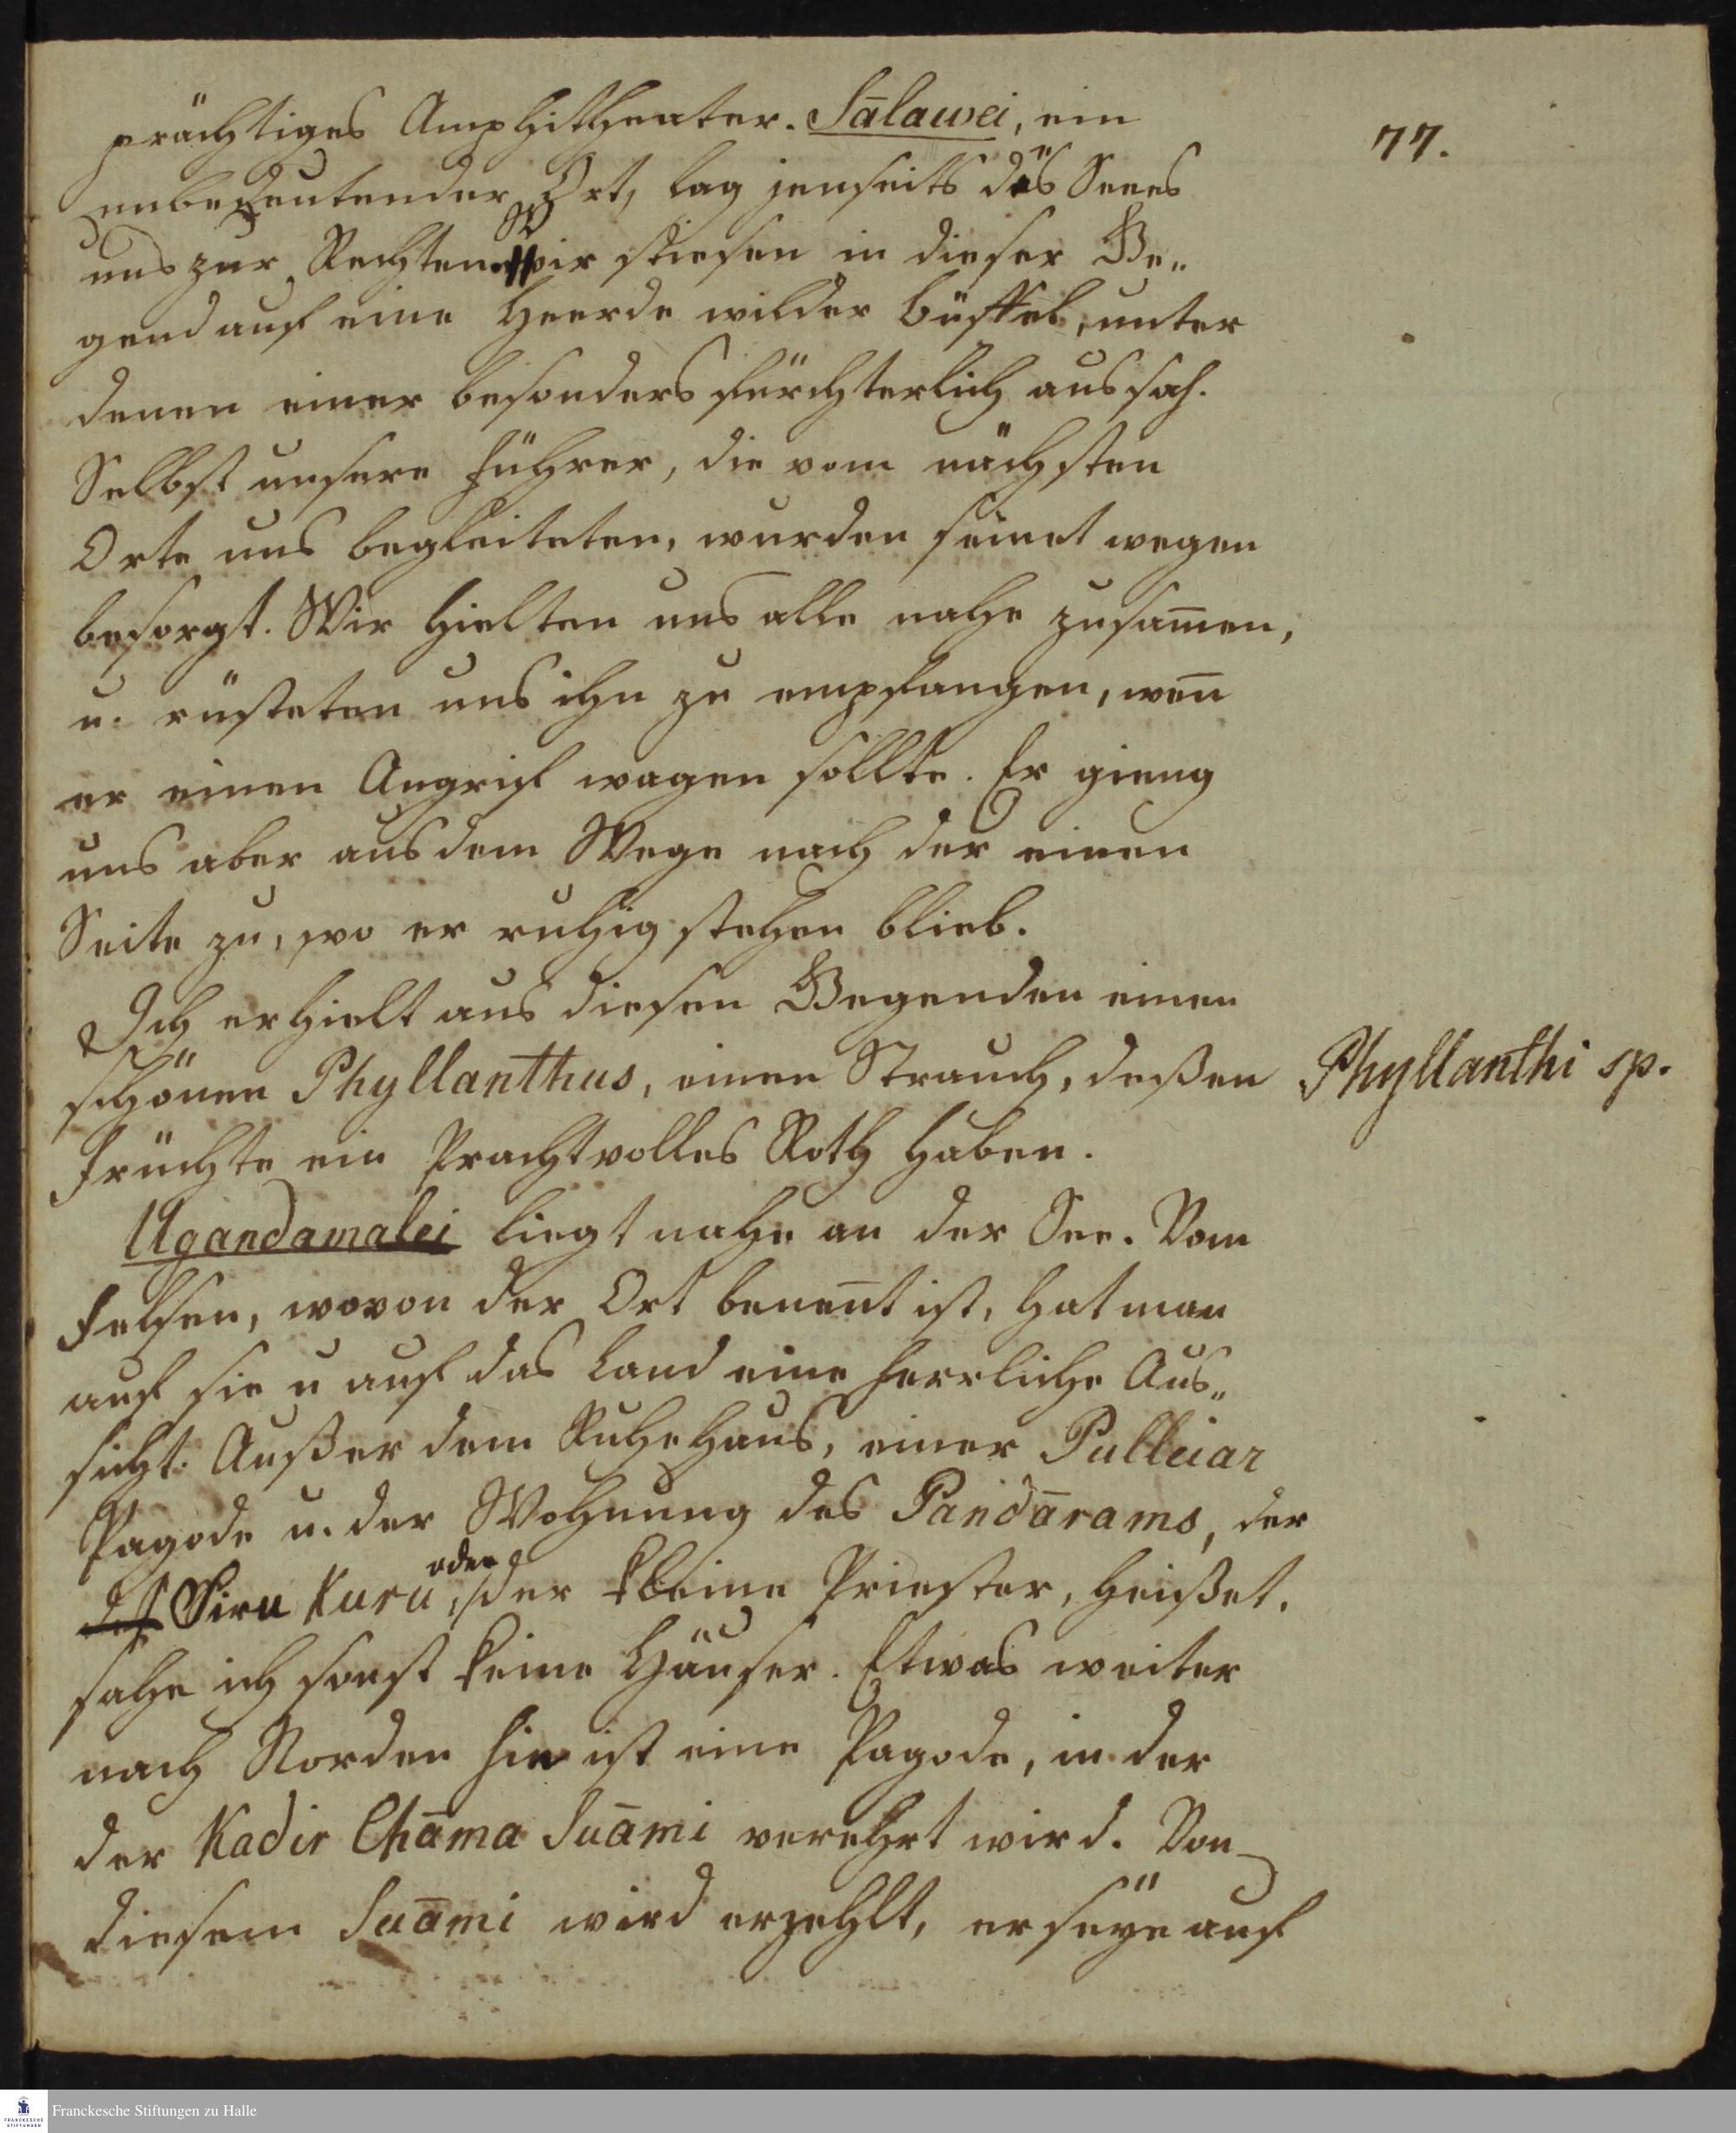 77.
prächtiges Amphitheater. Sālawei, ein
unbedeutender Ort, lag jenseits des Sees
uns zur Rechten. Wir stiesen in dieser Ge„
gend auf eine Heerde wilder Büffel, unter
denen einer besonders fürchterlich aussah.
Selbst unsere Führer, die vom nächsten
Orte uns begleiteten, wurden seinet wegen
besorgt. Wir hielten uns alle nahe zusam̄en,
u. rüsteten uns ihn zu empfangen, wen̄
er einen Angrif wagen sollte. Er gieng
uns aber aus dem Wege nach der einen
Seite zu, wo er ruhig stehen blieb.
Ich erhielt aus diesen Gegenden einen
schönen Phyllanthus, einen Strauch, deßen
Phyllanthi sp.
Früchte ein Prachtvolles Roth haben.
Ugandamalei liegt nahe an der See. Vom
Felsen, wovon der Ort benen̄t ist, hat man
auf sie u auf das Land eine herrliche Aus„
sicht. Außer dem Ruhehaus, einer Pulleiar
Pagode u. der Wohnung des Pandārams, der
Siru Kuru, oder der kleine Priester, heißet,
sahe ich sonst keine Häuser. Etwas weiter
nach Norden hin ist eine Pagode, in der
der Kadir Chāma Suāmi verehrt wird. Von
diesem Suāmi wird erzehlt, er seÿe auf
Franckesche Stiftungen zu Halle
FRANCKESCHE
STIFTUNGEN